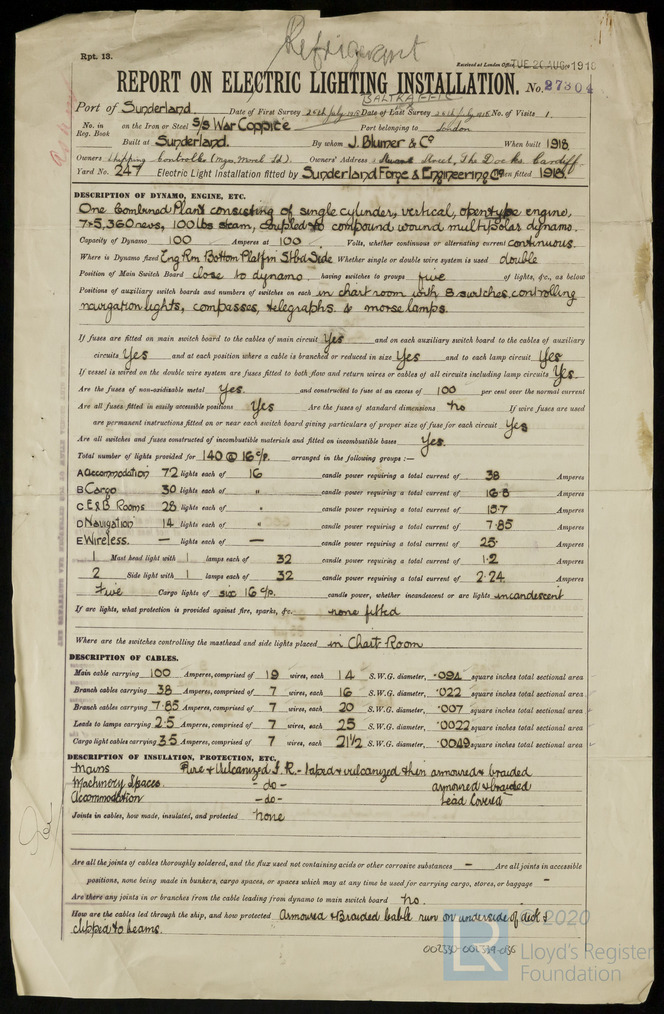 Refrigerant
Rpt. 13.
Received at London Office TUE. 20 AUG. 1918
REPORT ON ELECTRIC LIGHTING INSTALLATION. No. 37304
BALTRAFFIC
Port of Sunderland Date of First Survey 25th July 1918 Date of Last Survey 25th July 1918 No. of Visits 1.
No. in Reg. Book on the Iron or Steel S/S War Coppice Port belonging to London
Built at Sunderland. By whom J. Blumer & Co When built 1918
Owners Shipping Controller (Mgrs, Morel Ld). Owners' Address Stuart Street, The Docks, Cardiff
Yard No. 247 Electric Light Installation fitted by Sunderland Forge & Engineering Co When fitted 1918.
DESCRIPTION OF DYNAMO, ENGINE, ETC.
One Combined Plant consisting of single cylinder, vertical, open type engine,
7 × 5, 360 revs, 100 lbs steam, coupled to compound wound multipolar dynamo.
Capacity of Dynamo 100 Amperes at 100 Volts, whether continuous or alternating current continuous.
Where is Dynamo fixed Eng Rm Bottom Platfm Stbd Side Whether single or double wire system is used double
Position of Main Switch Board close to dynamo having switches to groups five of lights, &c., as below
Positions of auxiliary switch boards and numbers of switches on each in chart room with 8 switches controlling
navigation lights, compasses, telegraphs & morse lamps.
If fuses are fitted on main switch board to the cables of main circuit Yes and on each auxiliary switch board to the cables of auxiliary
circuits Yes and at each position where a cable is branched or reduced in size Yes and to each lamp circuit Yes
If vessel is wired on the double wire system are fuses fitted to both flow and return wires or cables of all circuits including lamp circuits Yes.
Are the fuses of non-oxidizable metal Yes. and constructed to fuse at an excess of 100 per cent over the normal current
Are all fuses fitted in easily accessible positions Yes Are the fuses of standard dimensions no If wire fuses are used
are permanent instructions fitted on or near each switch board giving particulars of proper size of fuse for each circuit Yes
Are all switches and fuses constructed of incombustible materials and fitted on incombustible bases Yes.
Total number of lights provided for 140 @ 16 c/p. arranged in the following groups :—
A Accommodation 72 lights each of 16 candle power requiring a total current of 38 Amperes
B Cargo 30 lights each of " candle power requiring a total current of 16.8 Amperes
C E & B Rooms 28 lights each of " candle power requiring a total current of 15.7 Amperes
D Navigation 14 lights each of " candle power requiring a total current of 7.85 Amperes
E Wireless. — lights each of — candle power requiring a total current of 25. Amperes
1 Mast head light with 1 lamps each of 32 candle power requiring a total current of 1.2 Amperes
2 Side light with 1 lamps each of 32 candle power requiring a total current of 2.24 Amperes
Five Cargo lights of six 16 c/p. candle power, whether incandescent or arc lights incandescent
If arc lights, what protection is provided against fire, sparks, &c. none fitted
Where are the switches controlling the masthead and side lights placed in Chart Room
DESCRIPTION OF CABLES.
Main cable carrying 100 Amperes, comprised of 19 wires, each 14 S.W.G. diameter, .094 square inches total sectional area
Branch cables carrying 38 Amperes, comprised of 7 wires, each 16 S.W.G. diameter, .022 square inches total sectional area
Branch cables carrying 7.85 Amperes, comprised of 7 wires, each 20 S.W.G. diameter, .007 square inches total sectional area
Leads to lamps carrying 2.5 Amperes, comprised of 7 wires, each 25 S.W.G. diameter, .0022 square inches total sectional area
Cargo light cables carrying 3.5 Amperes, comprised of 7 wires, each 21 1/2 S.W.G. diameter, .0049 square inches total sectional area
DESCRIPTION OF INSULATION, PROTECTION, ETC.
Mains Pure & Vulcanized I.R. - taped & vulcanized then armoured & braided
Machinery Spaces. - do - armoured & braided
Accommodation - do - Lead Covered
Joints in cables, how made, insulated, and protected none
Are all the joints of cables thoroughly soldered, and the flux used not containing acids or other corrosive substances — Are all joints in accessible
positions, none being made in bunkers, cargo spaces, or spaces which may at any time be used for carrying cargo, stores, or baggage —
Are there any joints in or branches from the cable leading from dynamo to main switch board no.
How are the cables led through the ship, and how protected Armoured & Braided cable run on underside of deck &
clipped to beams.
002330-002339-036
LR © 2020
Lloyd's Register
Foundation